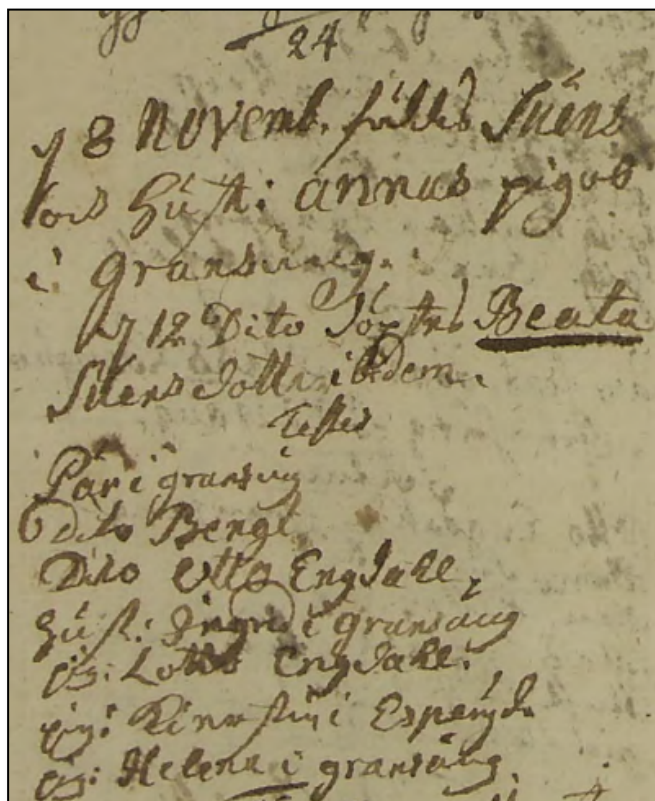 24
d 8 Novemb. föddes Suens
hust: annas pigob
i gransäng.
d 12 Dito döptes Beata
Suens dotter ibidem.
Testes
Pär i gransäng
dito Bengt
Dito Otto Engdahl,
hust: Ingrid i gransäng
pig: Lotta Engdahl.
pig: Kierstin i Esperyd
pig: Helena i gransäng